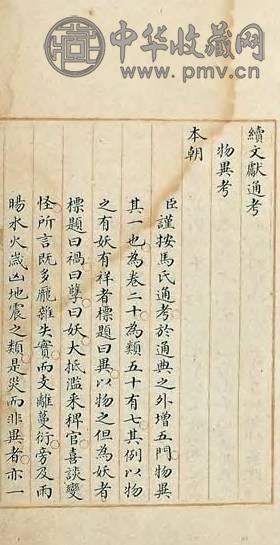 中华收藏网
www.pmv.cn
續文獻通考
物異考
本朝
臣謹按馬氏通考於通典之外增五門物異
其一也為卷二十為類五十有七其例以物
之有妖有祥者標題曰異以物之但為妖者
標題曰禍曰孽曰妖大抵濫采稗官喜談變
怪所言既多龐雜失實而支離蔓衍旁及雨
暘水火歲凶地震之類是災而非異者亦一